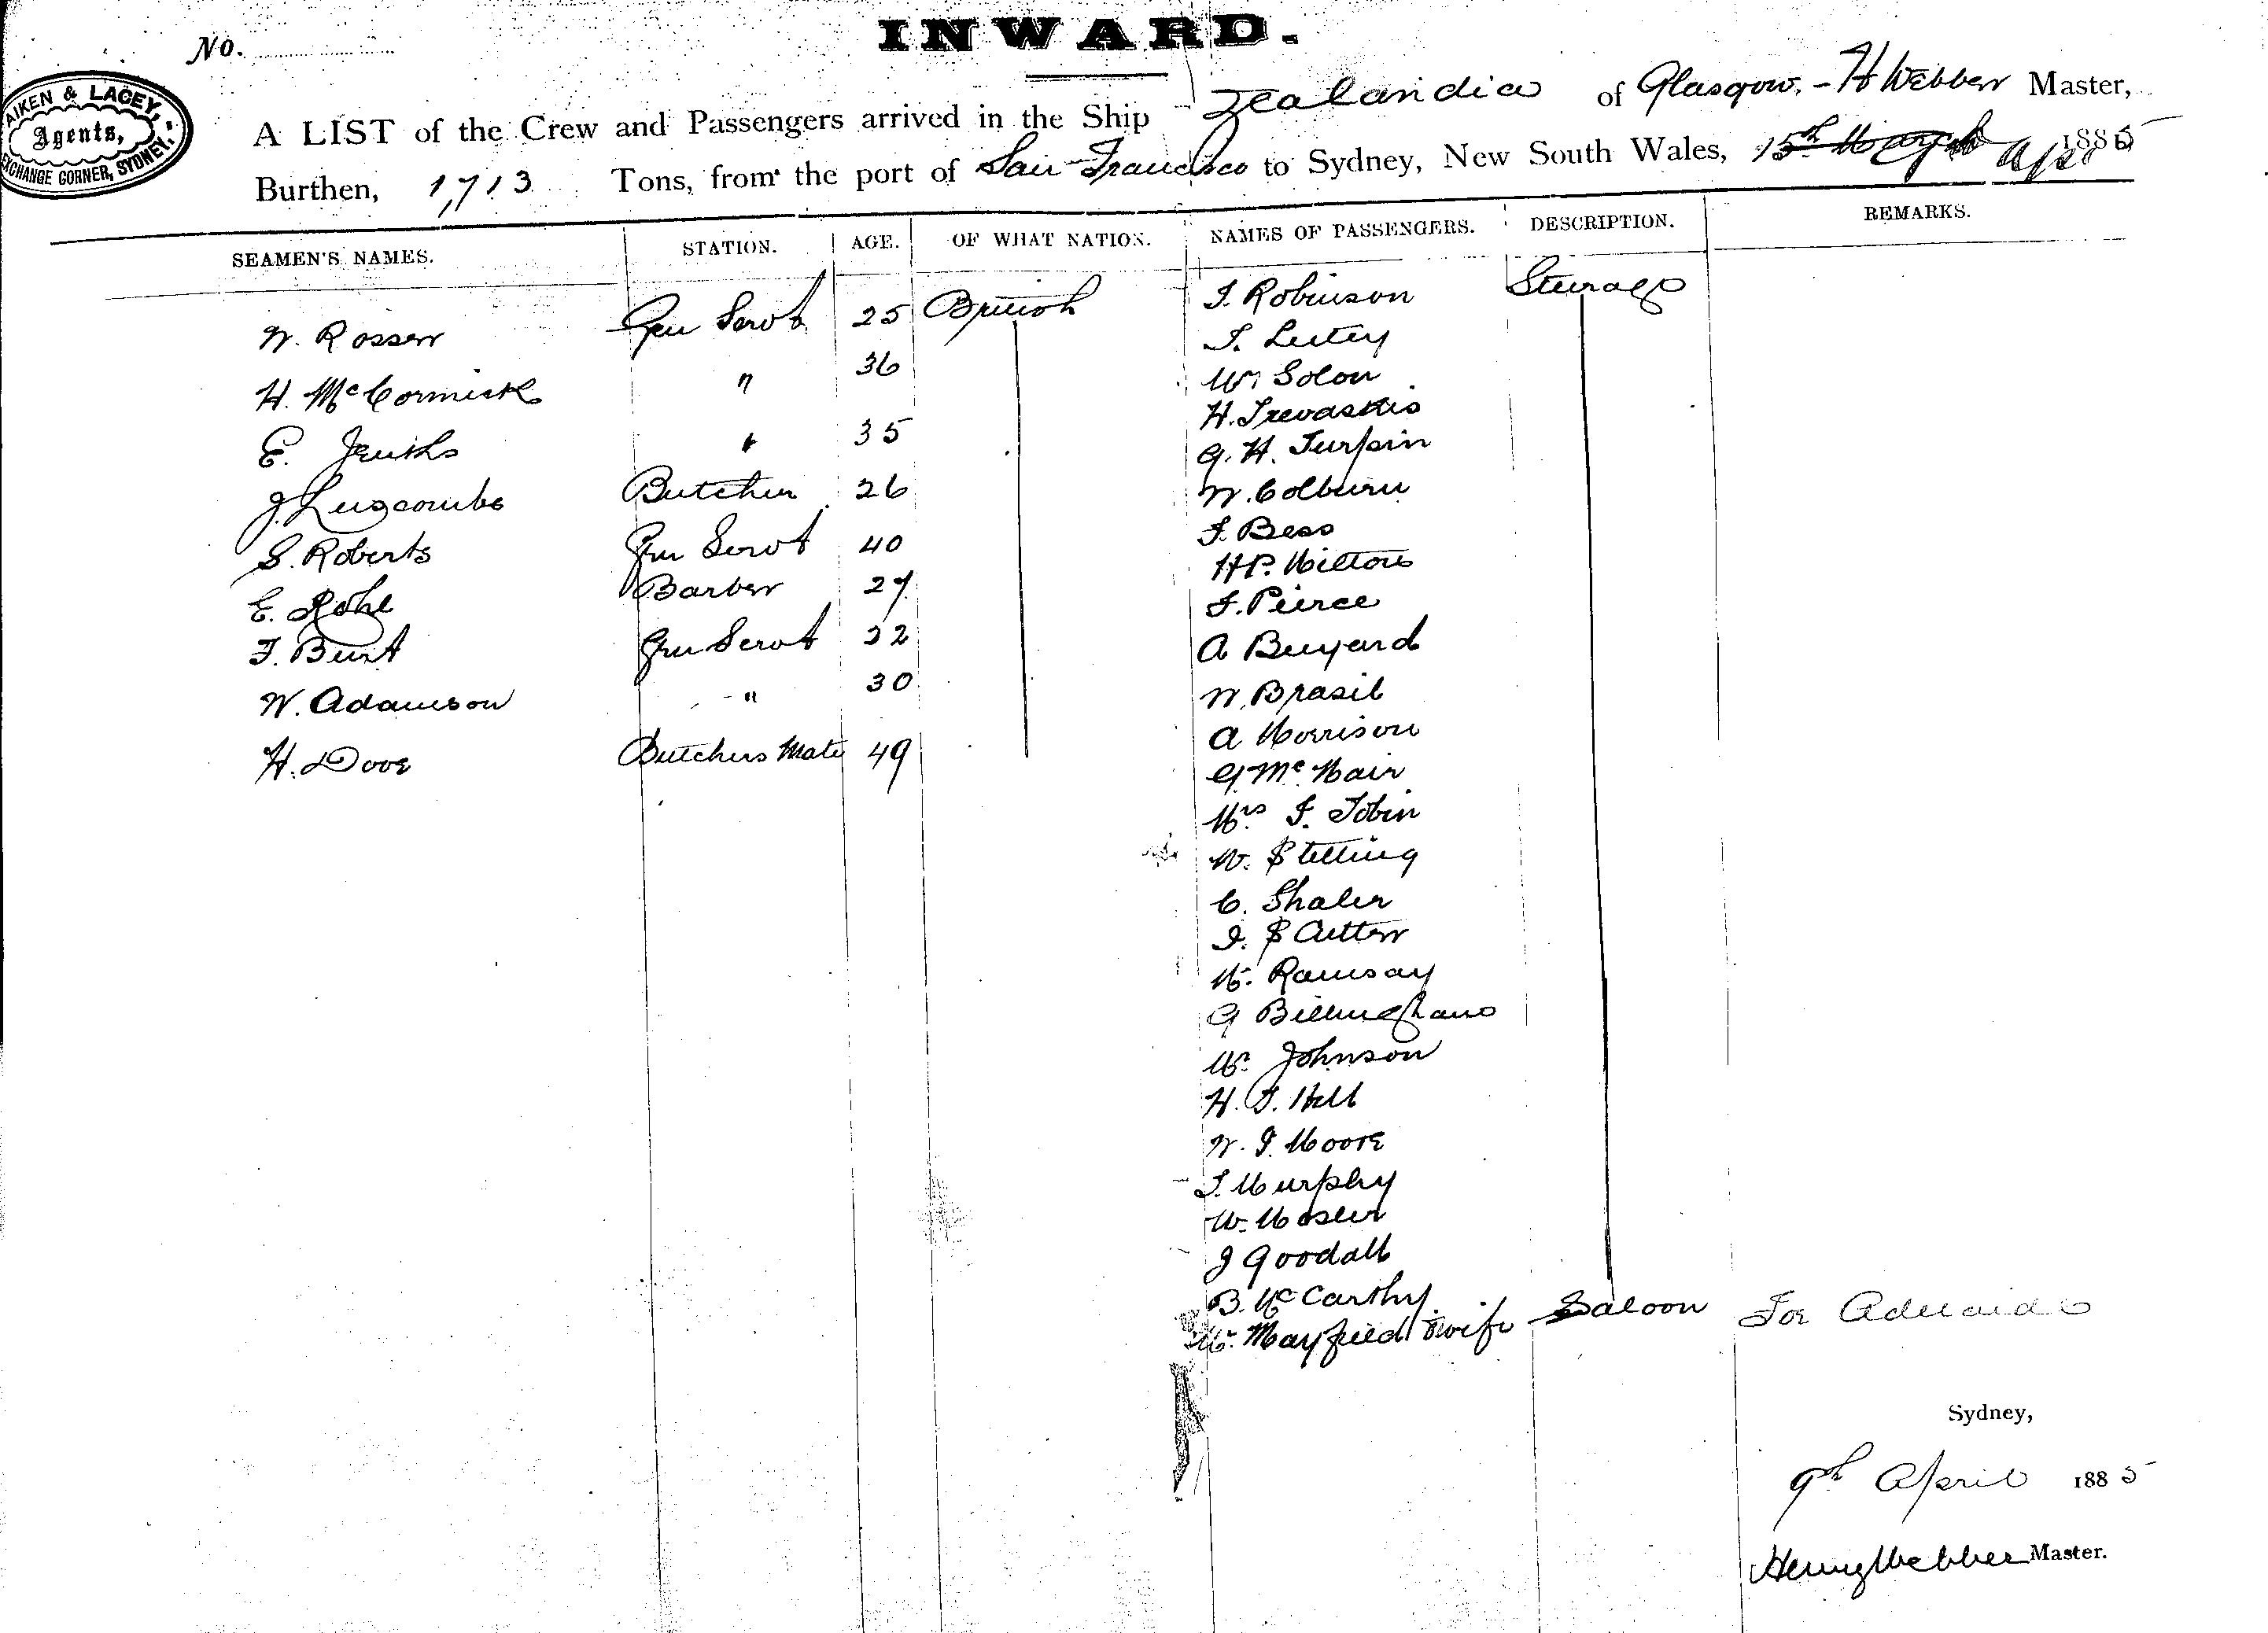 No.
INWARD.
AIKEN & LACEY,
Agents,
EXCHANGE CORNER, SYDNEY.
A LIST of the Crew and Passengers arrived in the Ship Zealandia of Glasgow. - H Webber Master,
Burthen, 1,713 Tons, from the port of San Francisco to Sydney, New South Wales, 15th March Apr 1885
SEAMEN'S NAMES. STATION. AGE. OF WHAT NATION. NAMES OF PASSENGERS. DESCRIPTION. REMARKS.
W. Rosser Gen Servt 25 British
H. McCormick " 36
E. Jenths " 35
J. Luscombe Butcher 26
S. Roberts Gen Servt 40
E. Rohl Barber 27
F. Burt Gen Servt 22
W. Adamson " 30
H. Dove Butchers Mate 49
J. Robinson Steerage
J. Lutey
W. Solon
H. Trevaskis
G. H. Turpin
W. Colburn
J. Bess
H P. Milton
J. Pierce
A Bunyard
W. Brasil
A Morrison
G. Mc Nair
Mrs F. Tobin
W. Stelling
C. Shaler
J. S Cutter
W. Ramsay
G Billingham
Mr Johnson
H. J. Hill
W. J. Moore
J. Murphy
W. Mosler
J Goodall
B. McCarthy
Mr. Mayfield & wife Saloon For Adelaide
Sydney,
9th April 1885
Henry Webber Master.